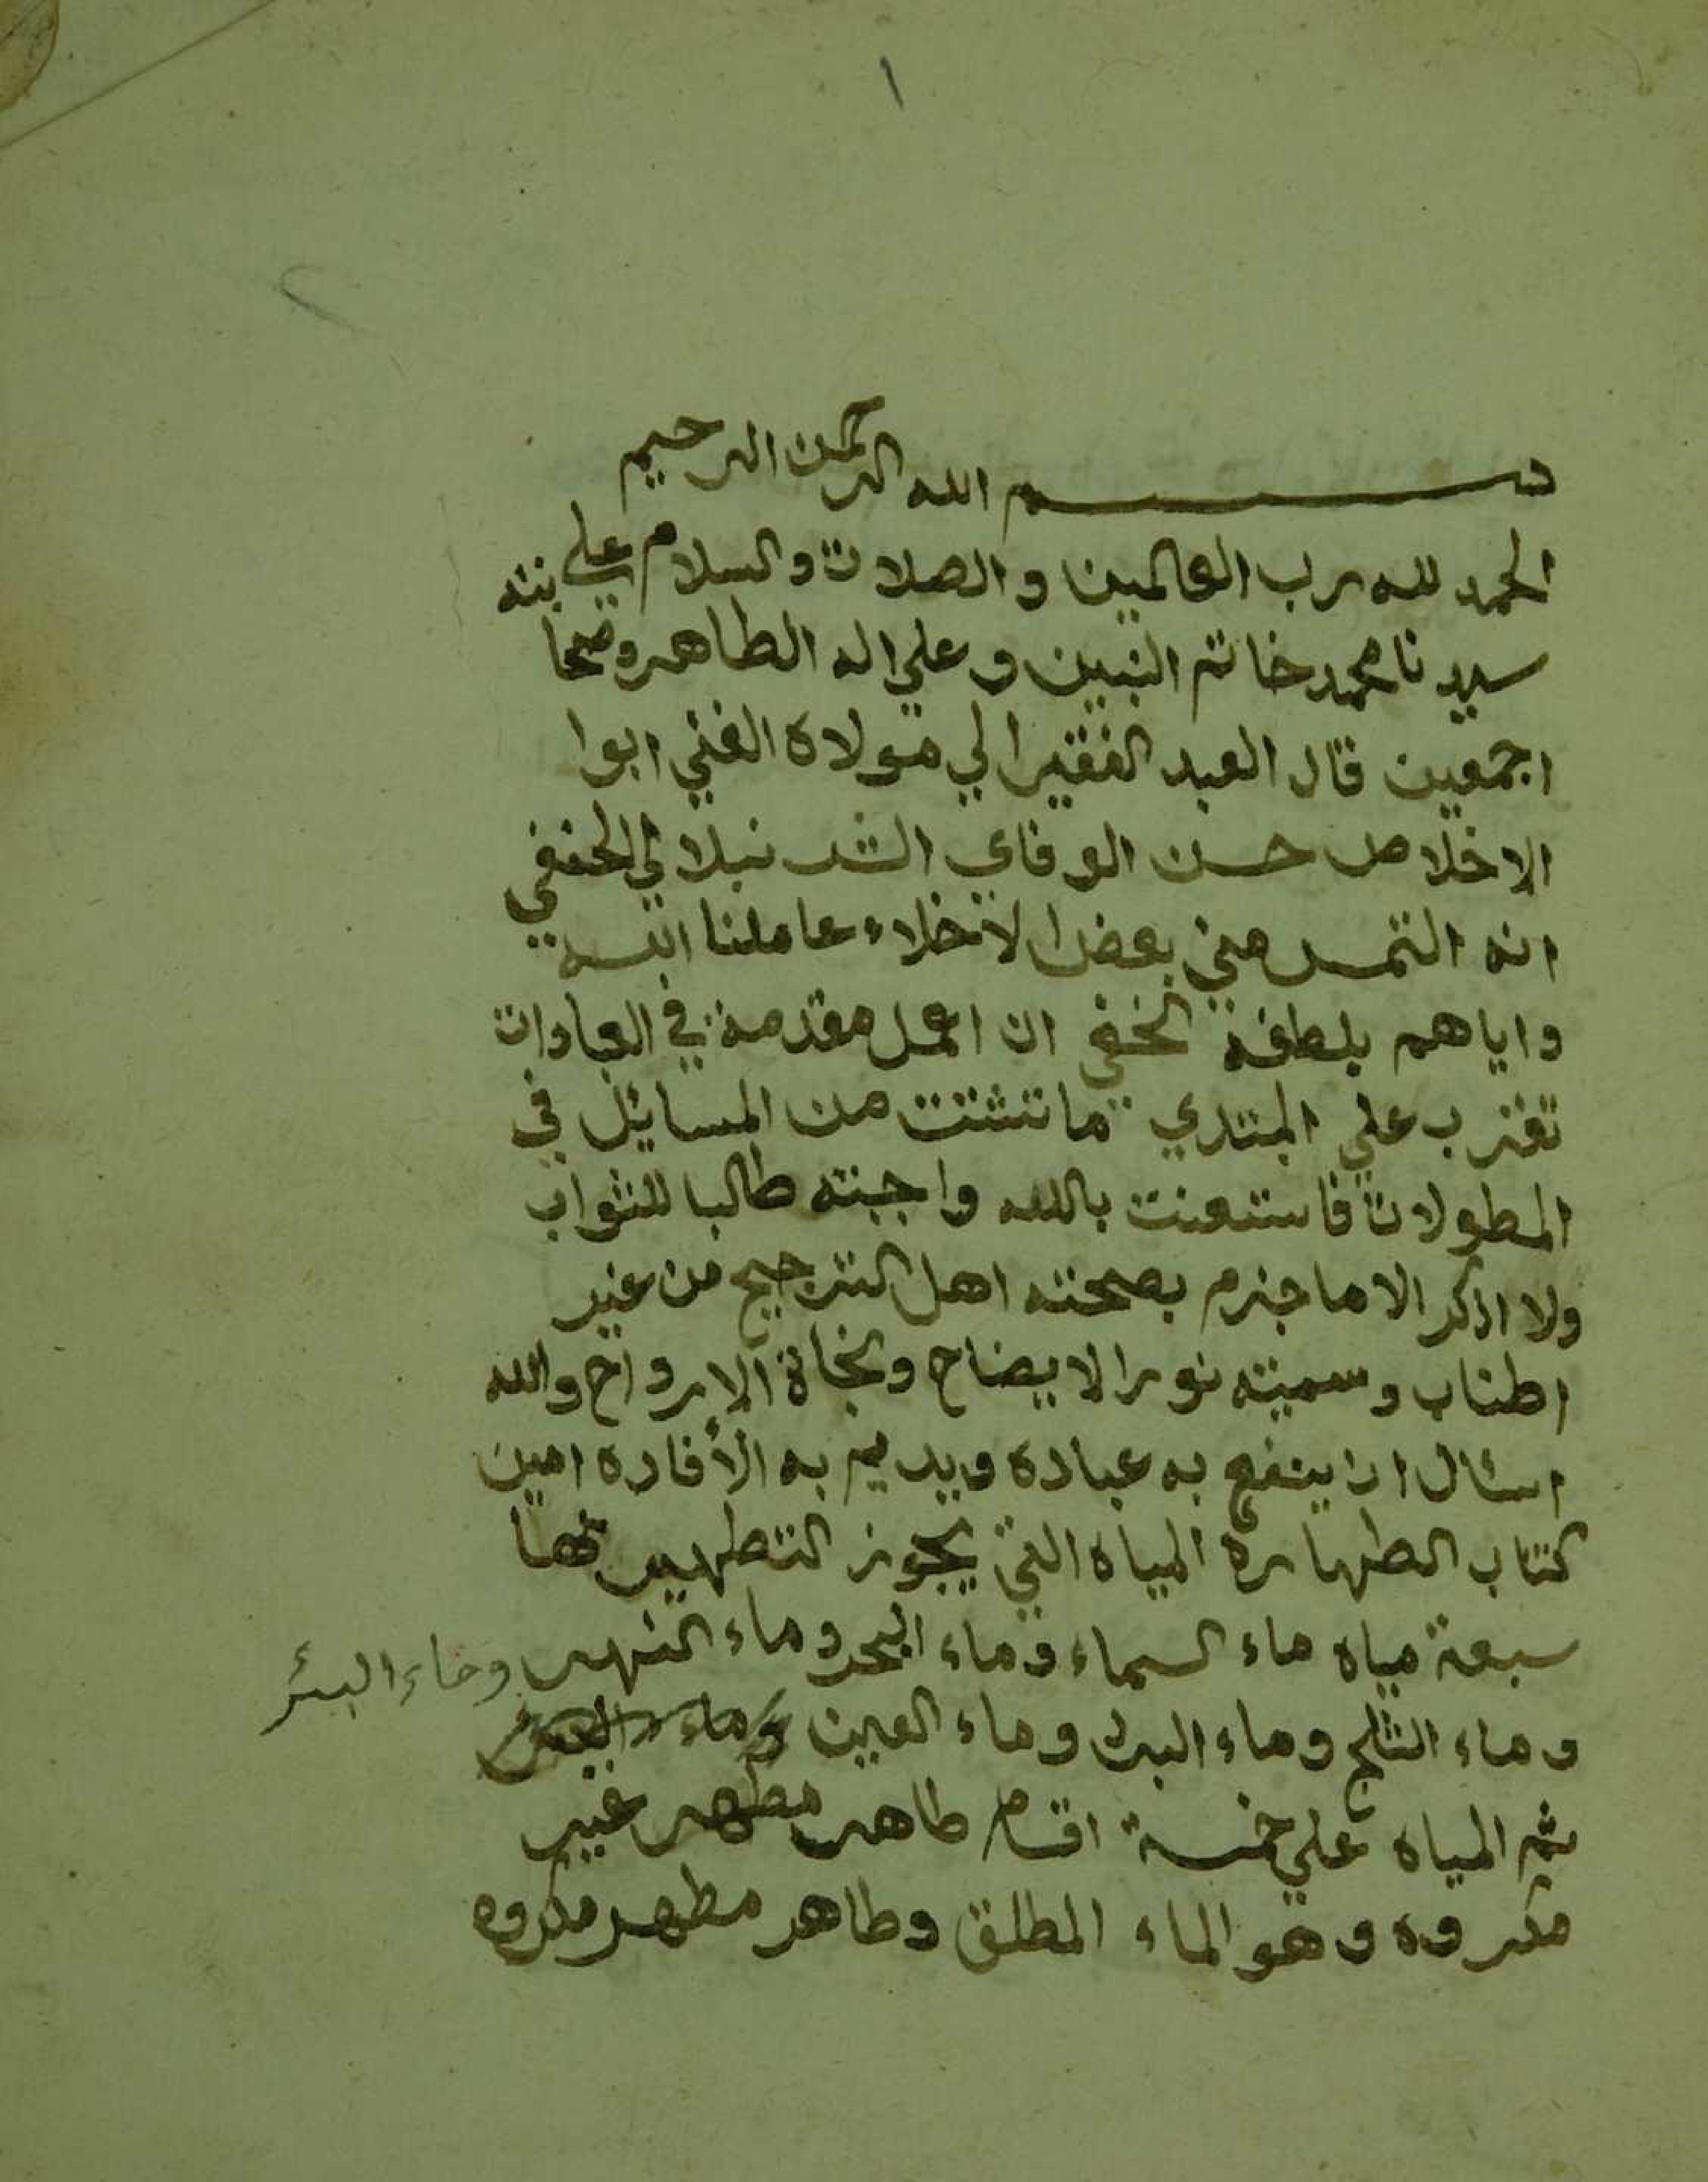 ١
بسم الله الرحمن الرحيم
الحمد لله رب العالمين والصلات والسلام علي نبيه
سيدنا محمد خاتم النبين وعلي اله الطاهر وصحا
اجمعين قال العبد الفقير الي مولاه الغني ابوا
الاخلاص حسن الوفاي الشرنبلالي الحنفي
انه التمس مني بعض الاخلاء عاملنا الله
واياهم بلطفه الخفي ان اعمل مقدمة في العبادات
تقرب علي المبتدي ما تشتت من المسايئل في
المطولات فاستعنت بالله واجبته طالبا للثواب
ولا اذكر الا ما جزم بصحته اهل الترجيح من غير
اطناب وسميته نور الايضاح ونجاة الارواح والله
اسئال ان ينفع به عباده ويديم به الأفاده امين
كتاب الطهاره المياه التي يجوز التطهير بها
سبعة مياه ماء السماء وماء البحر وماء النهر وماء البئر
وماء الثلج وماء البرد وماء العين
ثم المياه علي خمسة اقسام طاهر مطهر غير
مكروه وهو الماء المطلق وطاهر مطهر مكروه